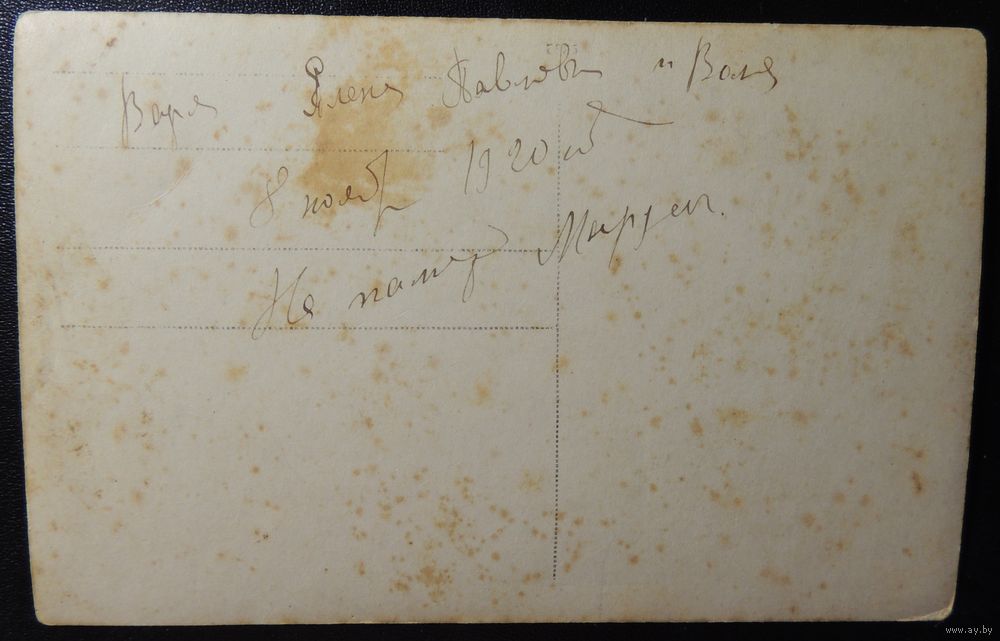 Варя Елена Павловн и Валя
8 нояб 1920 г
На память
www.ay.by